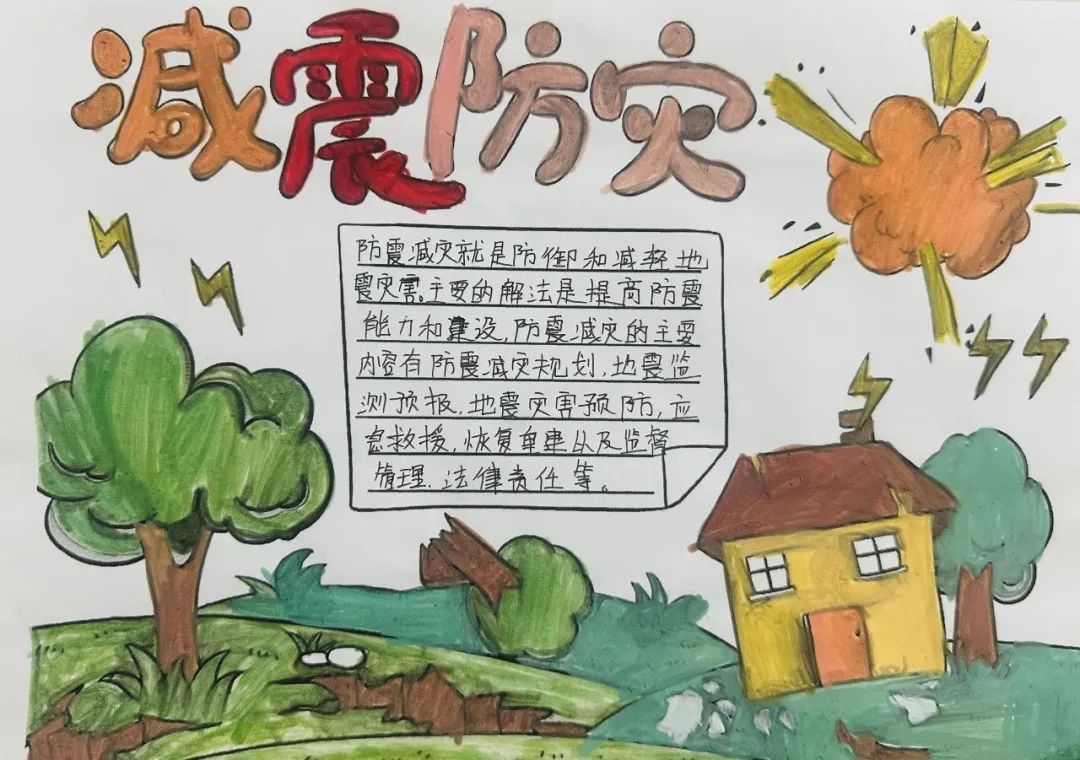 减震防灾
防震减灾就是防御和减轻地
震灾害。主要的解法是提高防震
能力和建设,防震减灾的主要
内容有防震减灾规划,地震监
测预报.地震灾害预防,应
急救援,恢复重建以及监督
管理.法律责任等。